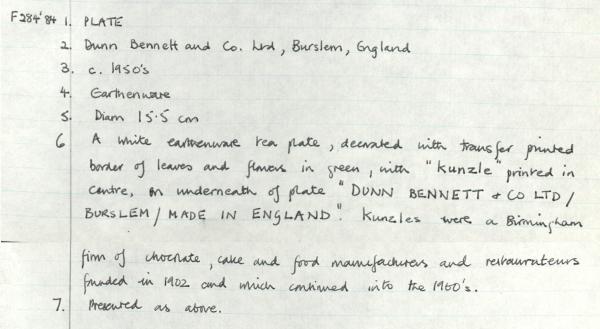 F284'84 1. PLATE
2. Dunn Bennett and Co. Ltd, Burslem, England
3. c. 1950's
4. Earthenware
5. Diam 15.5 cm
6 A white earthenware tea plate, decorated with transfer printed
border of leaves and flowers in green, with "Kunzle" printed in
centre, on underneath of plate "DUNN BENNETT & CO LTD /
BURSLEM / MADE IN ENGLAND". Kunzles were a Birmingham
firm of chocolate, cake and food manufacturers and restaurateurs
founded in 1902 and which continued into the 1960's.
7. Presented as above.